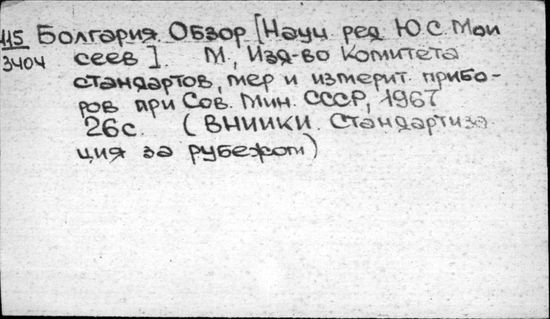 115 Болгария. Обзор [Науч. ред. Ю.С. Мои
3404 сеев]. М., Изд-во Комитета
стандартов, мер и измерит. прибо-
ров при Сов. Мин. СССР, 1967
26с. (ВНИИКИ. Стандартиза
ция за рубежом)